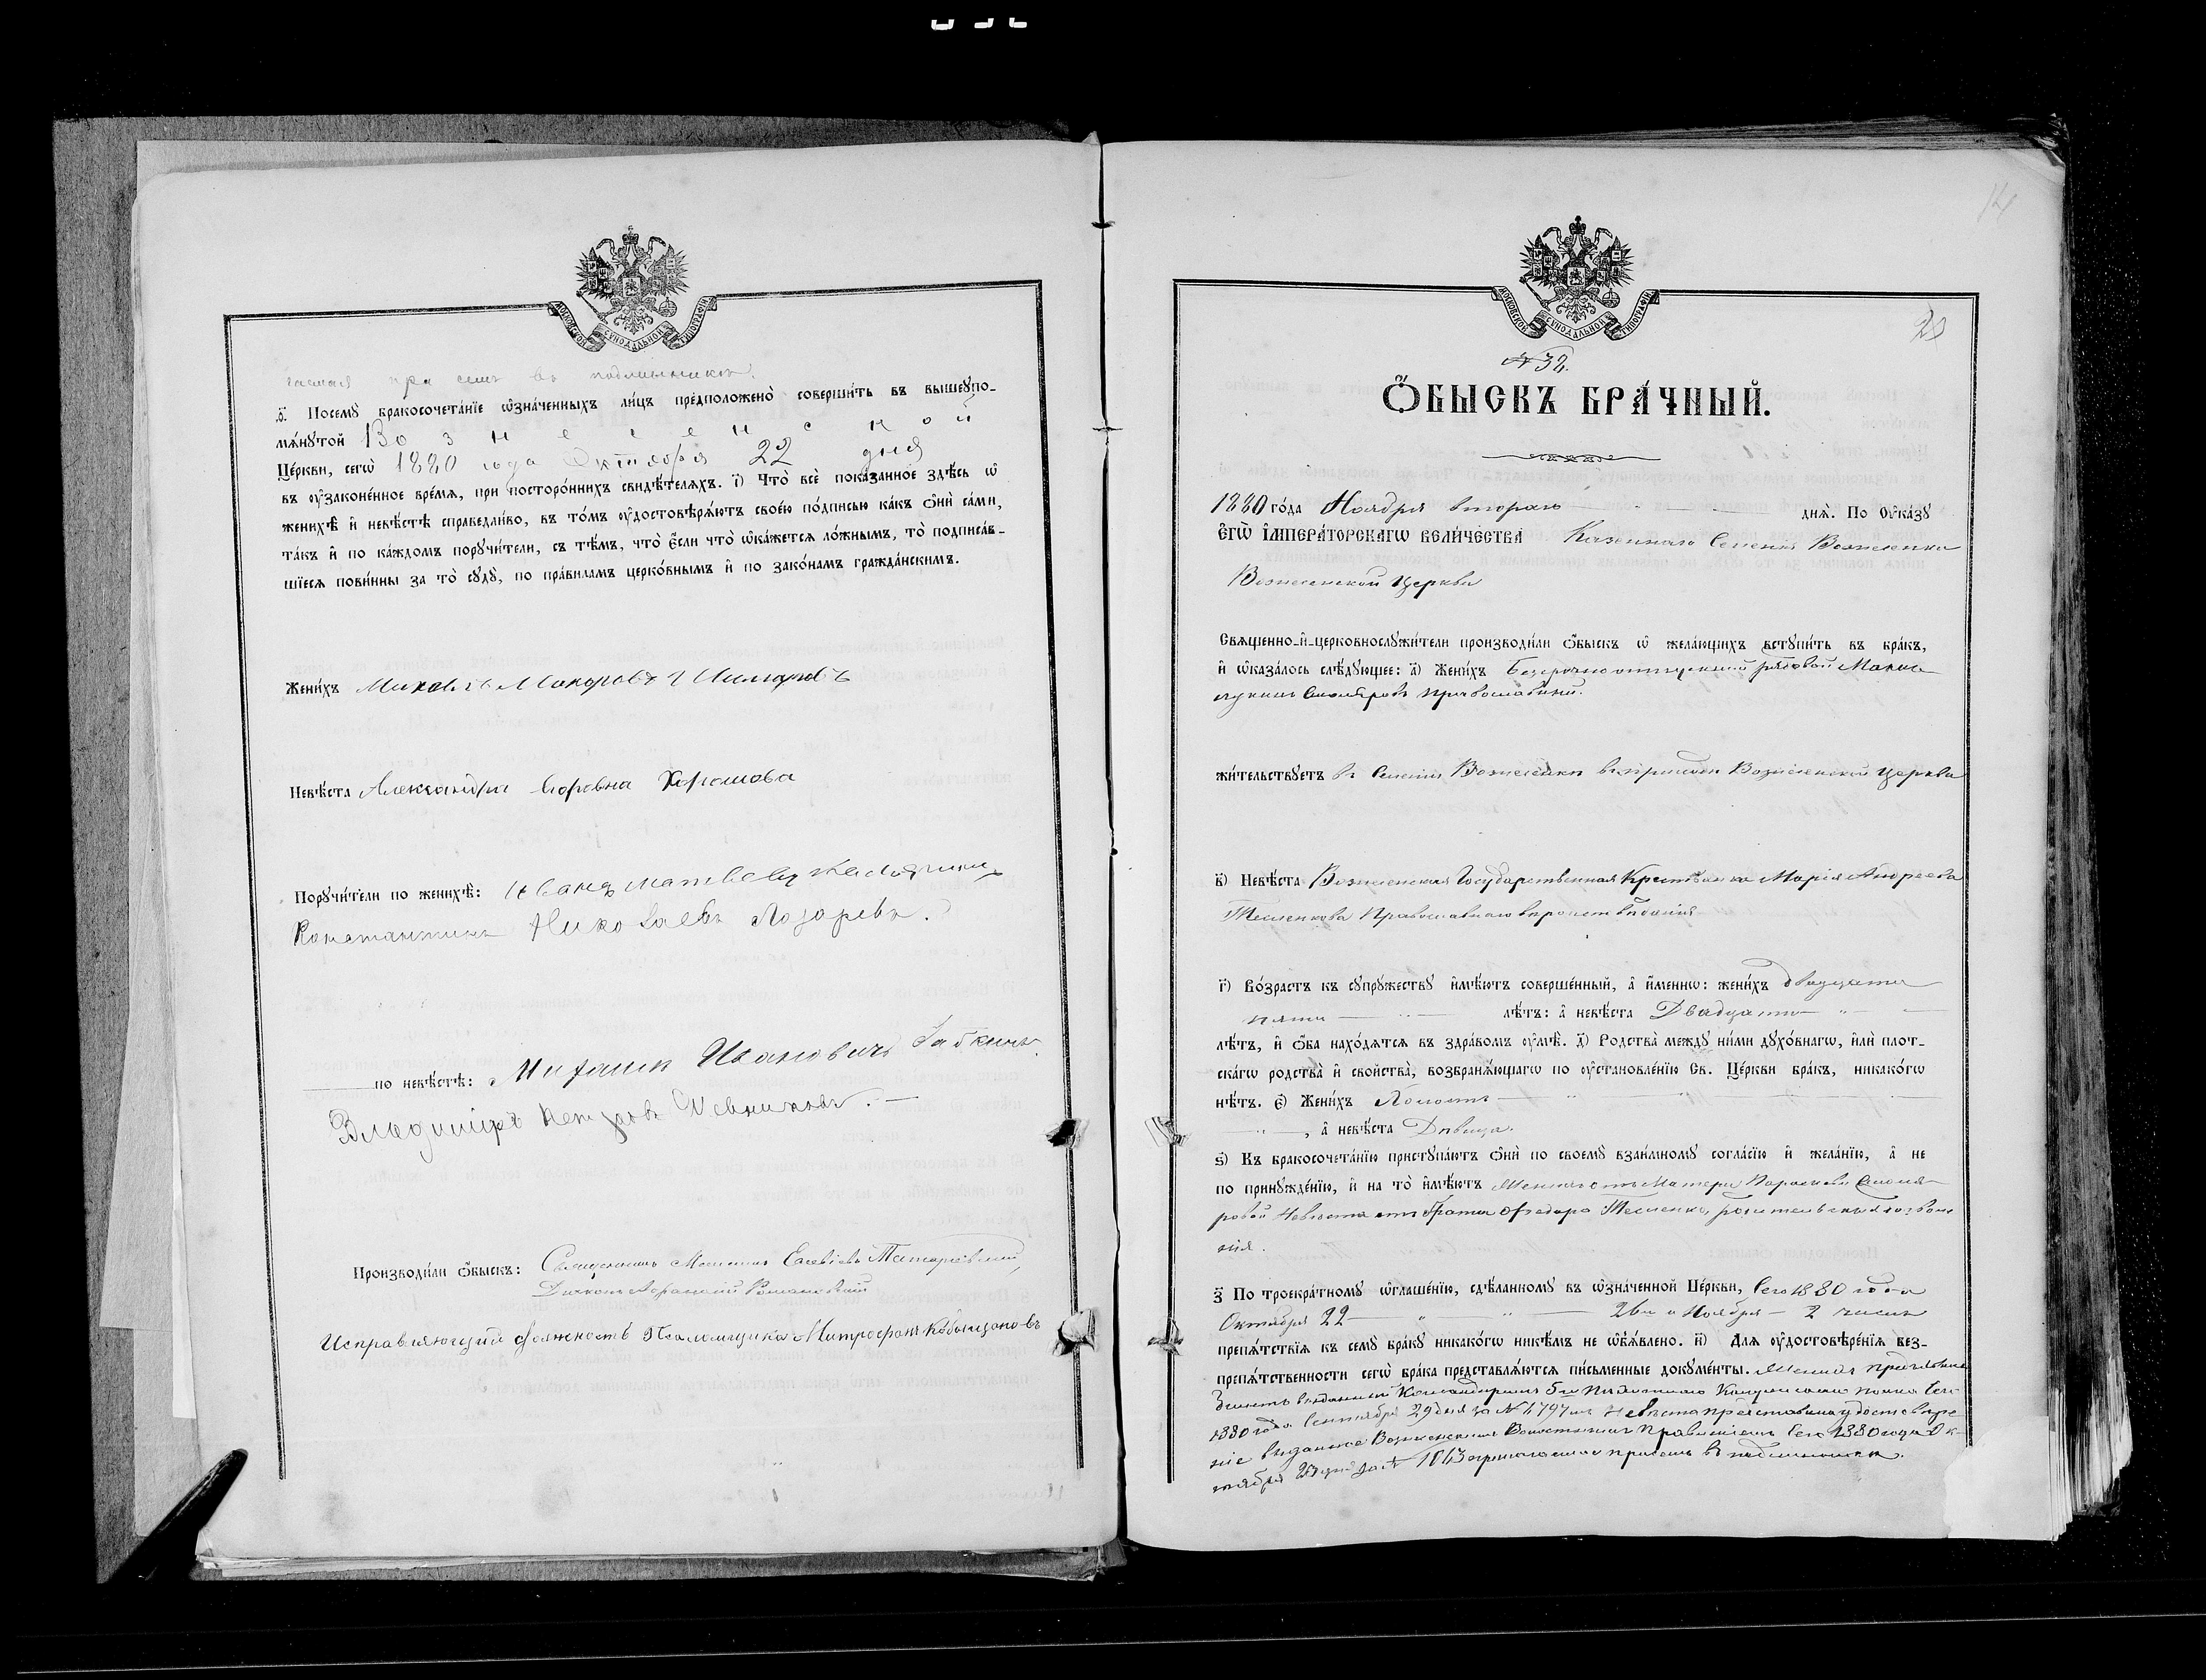 гаемая при семъ въ подлинникѣ.
д҃. Посемꙋ бракосочета́нїе ѡ҆зна́ченныхъ ли́цъ предположено̀ соверши́ть въ вышеꙋпо-
мѧ́нꙋтой Вознесенской
Це́ркви, сегѡ̀ 1880 года Октября 22 дня
въ ᲂу҆зако́ненное вре́мѧ, при посторо́ннихъ свидѣ́телѧхъ. і҃) Что̀ всѐ пока́занное здѣ́сь ѡ҆
женихѣ̀ и҆ невѣ́стѣ справедли́во, въ то́мъ ᲂу҆достовѣрѧ́ютъ свое́ю по́дписью ка́къ ѻ҆нѝ са́ми,
та́къ и҆ по ка́ждомъ порꙋчи́тели, съ тѣ́мъ, что̀ є҆́сли что̀ ѡ҆ка́жетсѧ ло́жнымъ, то̀ подписа́в-
шїесѧ пови́нны за то̀ сꙋдꙋ̀, по пра́виламъ церко́внымъ и҆ по зако́намъ гражда́нскимъ.
Жени́хъ Михаилъ Макаровъ
Невѣ́ста Александра Егоровна Хорошова
Порꙋчи́тели по женихѣ̀: Иванъ Матвевъ
Константинъ Николаевъ Лазаревъ.
по невѣ́стѣ: Михаилъ Ивановичъ Бабкинъ.
Владимиръ Петровъ
Производи́ли ѻ҆́быскъ: Священникъ
Дьяконъ Романовскій
Исправляющий должность Псаломщика Митрофанъ Кобыщановъ
14
20
№ 32.
Ѻ҆́БЫСКЪ БРА́ЧНЫЙ.
1880 го́да Ноября втораго днѧ̀. По ᲂу҆ка́зꙋ
Є҆гѡ̀ И҆мпера́торскагѡ Вели́чества Казеннаго Селенія Вознесенки
Вознесенской Церкви
Свѧще́нно-и҆-церковнослꙋжи́тели производи́ли ѻ҆́быскъ ѡ҆ жела́ющихъ встꙋпи́ть въ бра́къ,
и҆ ѡ҆каза́лось слѣ́дꙋющее: а҃) Жени́хъ Безсрочно отпускной рядовой
Столяровъ православный.
жи́тельствꙋетъ въ Селеніи Вознесенки въ приходѣ Вознесенской Церкви
в҃) Невѣ́ста Вознесенская Государственная Крестьянка Марія Андреева
Тесленкова Православнаго вѣроисповѣданія
г҃) Во́зрастъ къ сꙋпрꙋ́жествꙋ и҆мѣ́ютъ соверше́нный, а҆ и҆́меннѡ: жени́хъ двадцати
пяти лѣ́тъ: а҆ невѣ́ста Двадцати
лѣ́тъ, и҆ ѻ҆́ба нахо́дѧтсѧ въ здра́вомъ ᲂу҆мѣ̀. д҃) Родства̀ междꙋ̀ ни́ми дꙋхо́внагѡ, и҆лѝ плот-
ска́гѡ родства̀ и҆ сво́йства̀, возбранѧ́ющагѡ по ᲂу҆становле́нїю Св. Це́ркви бра́къ, никако́гѡ
нѣ́тъ. є҃) Жени́хъ Холостъ
, а҆ невѣ́ста Дѣвица.
ѕ҃) Къ бракосочета́нїю пристꙋпа́ютъ ѻ҆нѝ по своемꙋ̀ взаи́мномꙋ согла́сїю и҆ жела́нїю, а҆ не
по принꙋжде́нїю, и҆ на то̀ и҆мѣ́ютъ Женихъ отъ Матери Параскевы Столя-
ровой Невѣста отъ брата Федора Тесленко, родительския позволе
ния.
з҃ По троекра́тномꙋ ѡ҆глаше́нїю, сдѣ́ланномꙋ въ ѡ҆зна́ченной Це́ркви, Сего 1880 года
Октября 22 26 и Ноября 2 чисел
препѧ́тствїѧ къ семꙋ̀ бра́кꙋ никако́гѡ никѣ́мъ не ѡ҆б̾ѧ́влено. и҃) Для ᲂу҆достовѣре́нїѧ без-
препѧ́тственности сегѡ̀ бра́ка представлѧ́ютсѧ пи́сьменные докꙋме́нты. Женихъ
билетъ выданный Командиромъ 5го Пѣхотнаго полка Сего
1880 года Сентября 29 дня за № 4797 Невѣста представила удостовѣре
ніе выданное Вознесенскимъ Волостнымъ Правленіемъ Сего 1880 года Ок-
тября дня за № 1043 прилагаемое при семъ въ подлинникѣ.